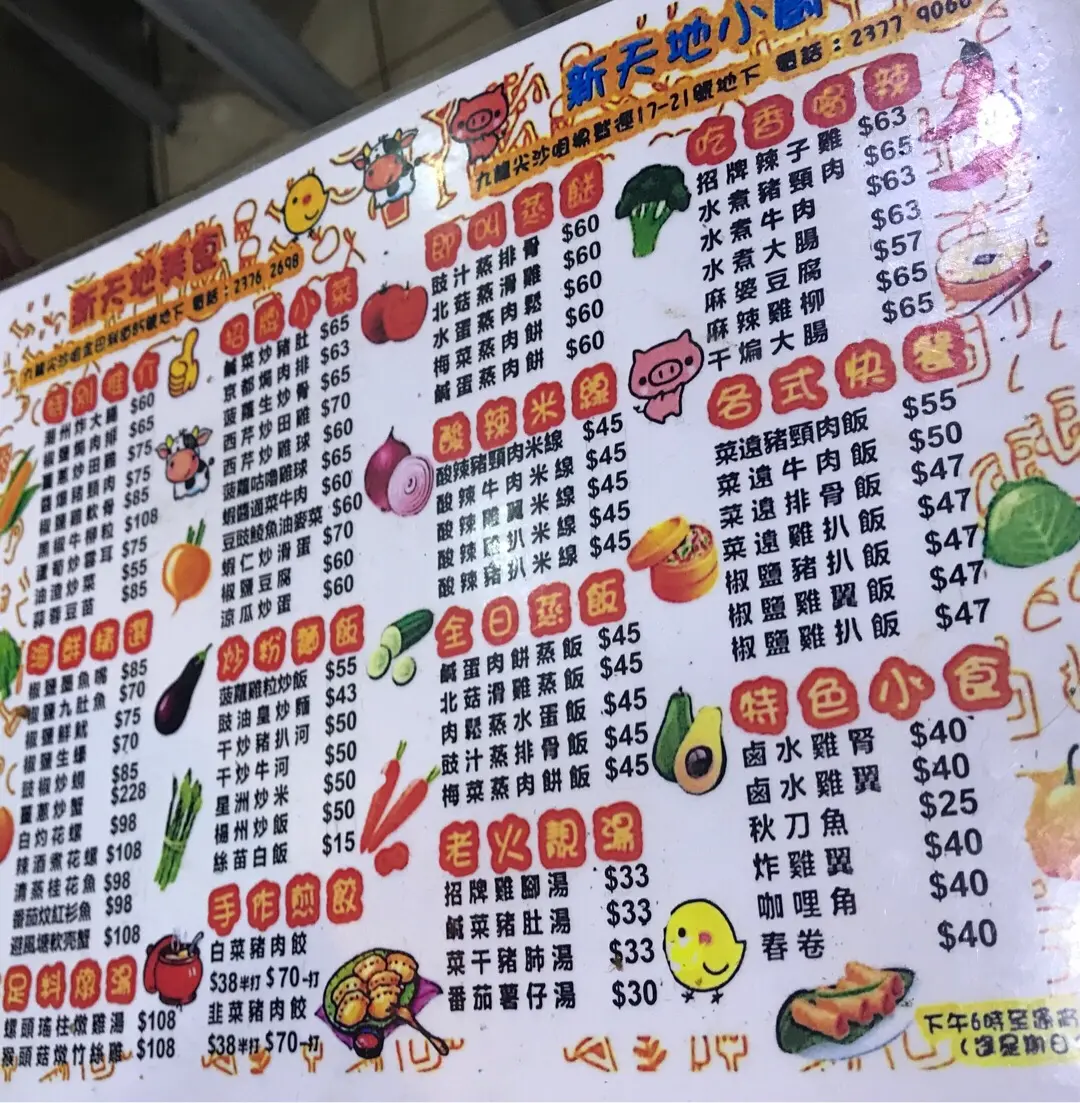 新天地小廚
九龍尖沙咀 17-21號地下 電話：2377 906
新天地美食
電話：2376 2698
特別推介
潮州炸大腸 $60
椒鹽焗肉排 $65
薑蔥炒田雞 $75
醬爆豬頸肉 $75
椒鹽雞軟骨 $85
黑椒牛柳粒 $108
蘆筍炒雲耳 $75
油渣炒菜 $55
蒜蓉豆苗 $85
海鮮精選
椒鹽墨魚嘴 $85
椒鹽九肚魚 $70
椒鹽鮮魷 $75
椒鹽生蠔 $70
豉椒炒蜆 $85
薑蔥炒蟹 $228
白灼花螺 $98
辣酒煮花螺 $108
清蒸桂花魚 $98
番茄炆紅衫魚 $98
避風塘軟壳蟹 $108
足料燉湯
螺頭瑤柱燉雞湯 $108
猴頭菇燉竹絲雞 $108
招牌小菜
鹹菜炒豬肚 $65
京都焗肉排 $63
菠蘿生炒骨 $65
西芹炒田雞 $70
西芹炒雞球 $60
菠蘿咕嚕雞球 $65
蝦醬通菜牛肉 $60
豆豉鯪魚油麥菜 $60
蝦仁炒滑蛋 $70
椒鹽豆腐 $60
涼瓜炒蛋 $60
炒粉麵飯
菠蘿雞粒炒飯 $55
豉油皇炒麵 $43
干炒豬扒河 $50
干炒牛河 $50
星洲炒米 $50
楊州炒飯 $50
絲苗白飯 $15
手作煎餃
白菜豬肉餃
$38半打 $70一打
韭菜豬肉餃
$38半打 $70一打
即叫蒸餸
豉汁蒸排骨 $60
北菇蒸滑雞 $60
水蛋蒸肉鬆 $60
梅菜蒸肉餅 $60
鹹蛋蒸肉餅 $60
酸辣米線
酸辣豬頸肉米線 $45
酸辣牛肉米線 $45
酸辣雞翼米線 $45
酸辣雞扒米線 $45
酸辣豬扒米線 $45
全日蒸飯
鹹蛋肉餅蒸飯 $45
北菇滑雞蒸飯 $45
肉鬆蒸水蛋飯 $45
豉汁蒸排骨飯 $45
梅菜蒸肉餅飯 $45
老火靚湯
招牌雞腳湯 $33
鹹菜豬肚湯 $33
菜干豬肺湯 $33
番茄薯仔湯 $30
吃香喝辣
招牌辣子雞 $63
水煮豬頸肉 $65
水煮牛肉 $63
水煮大腸 $63
麻婆豆腐 $57
麻辣雞柳 $65
干煸大腸 $65
各式快餐
菜遠豬頸肉飯 $55
菜遠牛肉飯 $50
菜遠排骨飯 $47
菜遠雞扒飯 $47
椒鹽豬扒飯 $47
椒鹽雞翼飯 $47
椒鹽雞扒飯 $47
特色小食
鹵水雞腎 $40
鹵水雞翼 $40
秋刀魚 $25
炸雞翼 $40
咖哩角 $40
春卷 $40
下午6時至